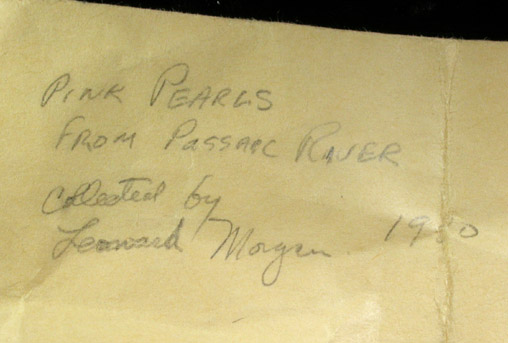 PINK PEARLS
FROM PASSAIC RIVER
Collected by
Leonard Morgan